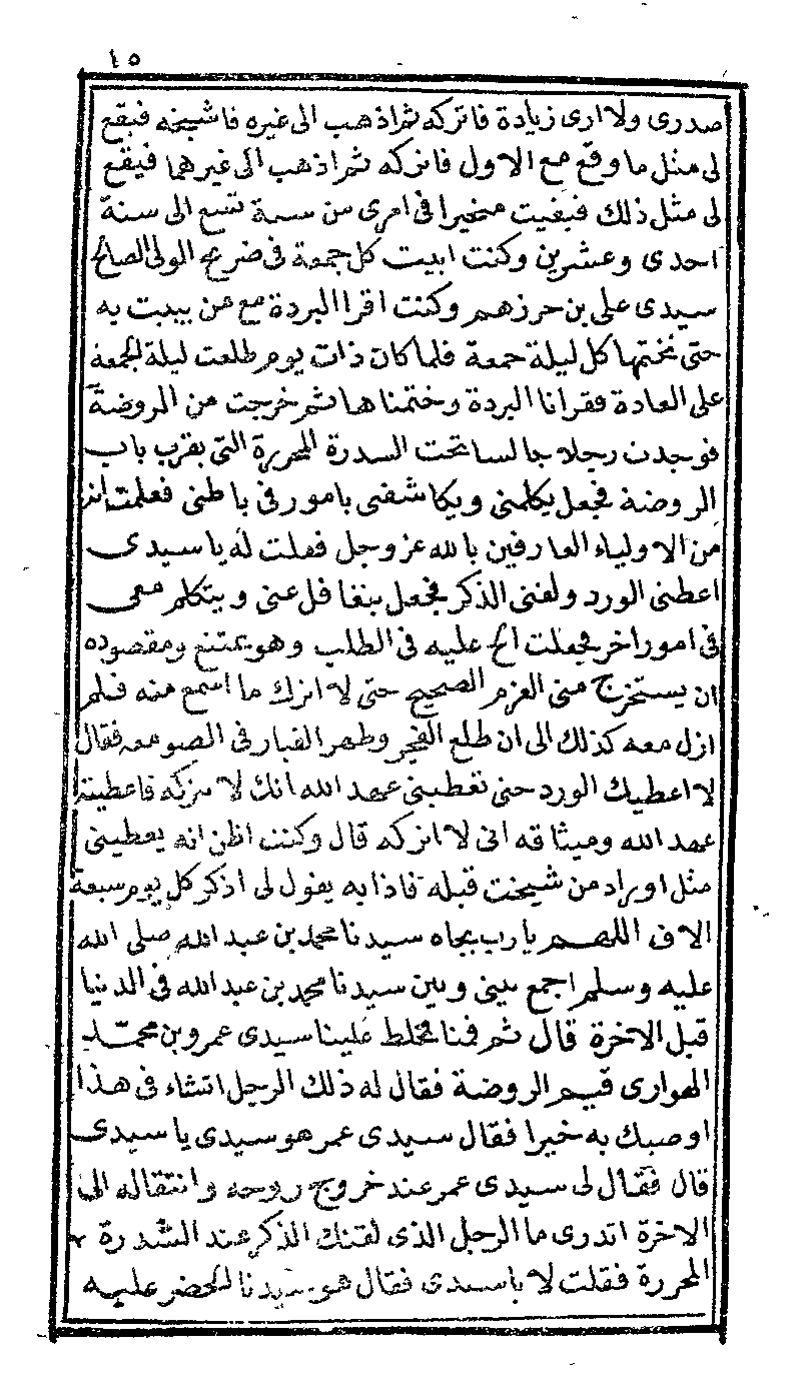 ١٥
صدرى ولا ارى زيادة فاتركه ثم اذهب الى غيره فاشيخه فيقع
لى مثل ما وقع مع الاول فاتركه ثم اذهب الى غيرهما فيقع
لى مثل ذلك فبقيت متحيرا فى امرى من سنة تسع الى سنة
احدى وعشرين وكنت ابيت كل جمعة فى ضريح الولى الصالح
سيدى على بن حرزهم وكنت اقرا البردة مع من يبيت به
حتى نختمها كل ليلة جمعة فلما كان ذات يوم طلعت ليلة الجمعة
على العادة فقرانا البردة وختمناها ثم خرجت من الروضة
فوجدت رجلا جالسا تحت السدرة المحررة التى بقرب باب
الروضة فجعل يكلمنى ويكاشفنى بامور فى باطنى فعلمت انه
من الاولياء العارفين بالله عز وجل فقلت له يا سيدى
اعطنى الورد ولقنى الذكر فجعل يتغافل عنى ويتكلم معى
فى امور اخر فجعلت الح عليه فى الطلب وهو يمتنع ومقصوده
ان يستخرج منى العزم الصحيح حتى لا اترك ما اسمع منه فلم
ازل معه كذلك الى ان طلع الفجر وظهر الغبار فى الصومعه فقال
لا اعطيك الورد حتى تعطينى عهد الله انك لا تتركه فاعطيته
عهد الله وميثاقه انى لا اتركه قال وكنت اظن انه يعطينى
مثل اوراد من شيخت قبله فاذا به يقول لى اذكر كل يوم سبعة
الاف اللهم يا رب بجاه سيدنا محمد بن عبد الله صلى الله
عليه وسلم اجمع بينى وبين سيدنا محمد بن عبد الله فى الدنيا
قبل الاخرة قال ثم قمنا فخلط علينا سيدى عمرو بن محمّد
الهوارى قيم الروضة فقال له ذلك الرجل اتشاء فى هذا
اوصيك به خيرا فقال سيدى عمر هو سيدى يا سيدى
قال فقال لى سيدى عمر عند خروج روحه وانتقاله الى
الاخرة اتدرى ما الرجل الذى لقنك الذكر عند السدرة
المحررة فقلت لا يا سيدى فقال هو سيدنا الخضر عليه